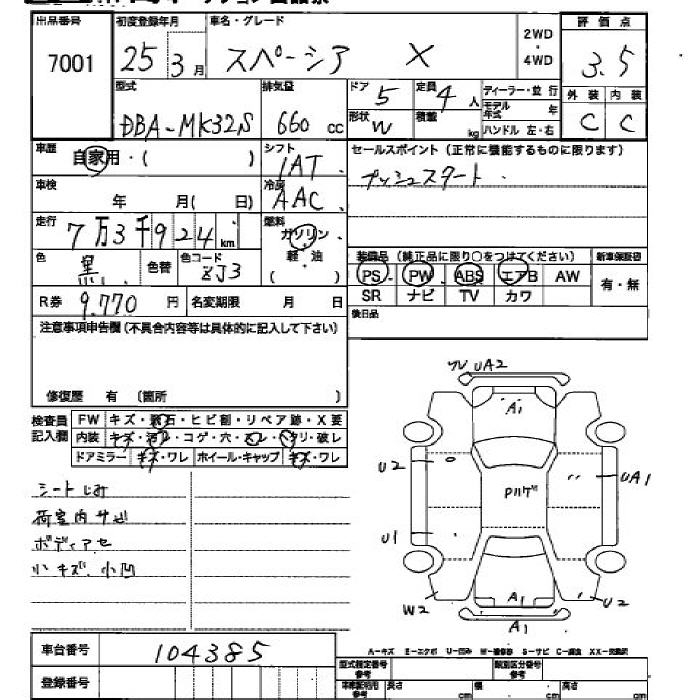 出品番号 初度登録年月 車名・グレード 2WD・4WD 評価点
7001 25年3月 スペーシア X 3.5
型式 排気量 ドア 5 定員 4人 ディーラー・並行 外装 内装
DBA-MK32S 660cc 形状 W 積載 kg モデル年式 年 ハンドル 左・右 C C
車歴 自家用・( ) シフト IAT セールスポイント(正常に機能するものに限ります)
車検 年 月( 日) 冷房 AAC プッシュスタート
走行 7万3千924km 燃料 ガソリン・軽・油 ( )
色 黒 色替 色コード ZJ3 装備品(純正品に限り○をつけてください) 新車保証書
PS PW ABS エアB AW 有・無
R券 9.770円 名変期限 月 日 SR ナビ TV カワ
注意事項申告欄(不具合内容等は具体的に記入して下さい) 後日品
修復歴 有 (箇所 )
検査員記入欄 FW キズ・飛石・ヒビ割・リペア跡・X要
内装 キズ・汚レ・コゲ・穴・スレ・ヘタリ・破レ
ドアミラー キズ・ワレ ホイール・キャップ キズ・ワレ
シートしみ
荷室内サビ
ボディアセ
小キズ、小凹
UA2
A1
U2
UA1
U1
W2 A1 U2
A1
A-キズ E-エクボ U-凹み W-補修跡 S-サビ C-腐食 XX-交換済
車台番号 104385
型式指定番号 参考 類別区分番号 参考
登録番号
長さ cm 幅 cm 高さ cm